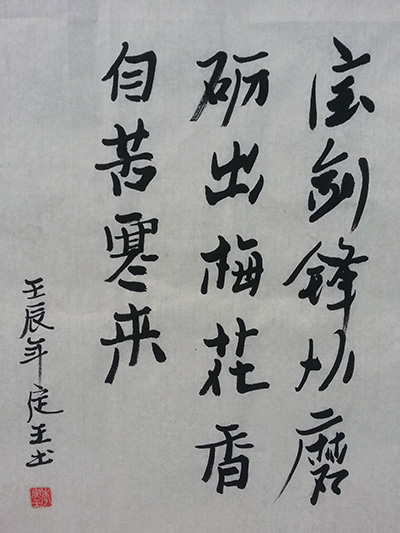 宝剑锋从磨
砺出梅花香
自苦寒来
壬辰年定王书